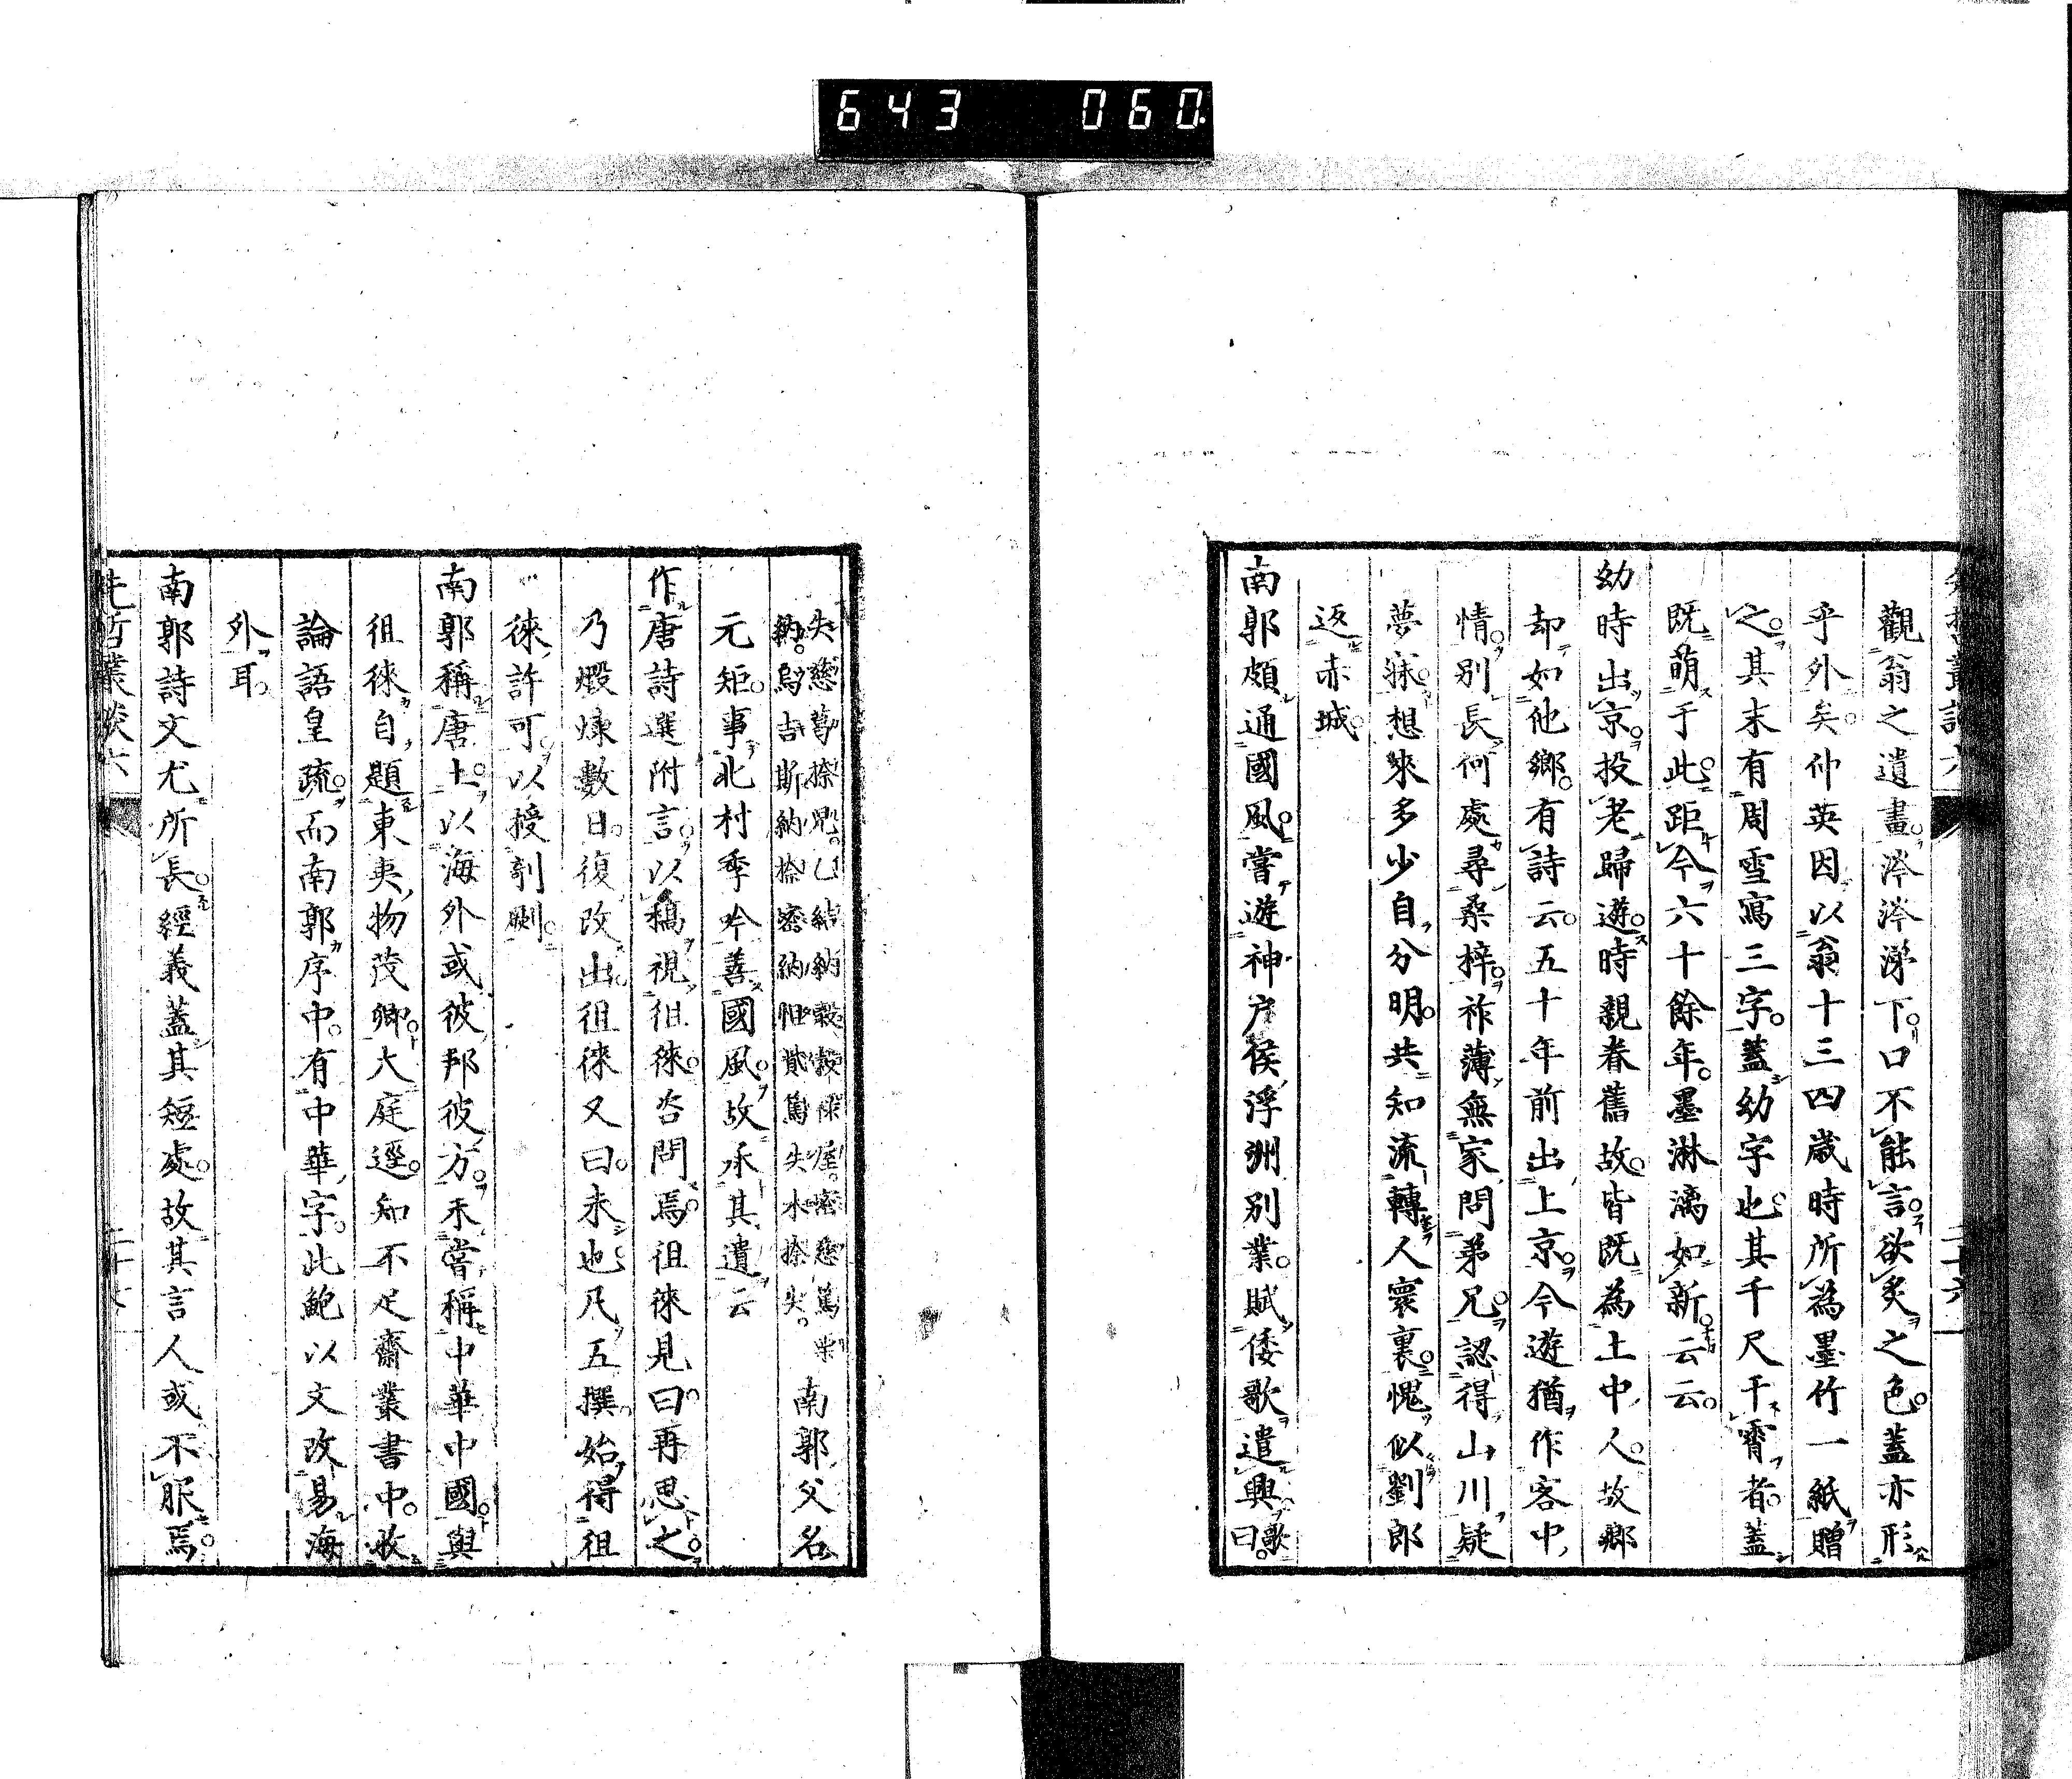 643 060
觀翁之遺畫涔涔淚下口不能言欲炙之色蓋亦形
乎外矣仲英因以翁十三四歲時所為墨竹一紙贈
之其末有周雪寫三字蓋幼字也其千尺干霄者蓋
既萌于此距今六十餘年墨淋漓如新云云
幼時出京投老歸遊時親眷舊故皆既為土中人故鄉
却如他鄉有詩云五十年前出上京今遊猶作客中
情別長何處尋桑梓祚薄無家問弟兄認得山川疑
夢寐想來多少自分明共知流轉人寰裏愧似劉郎
返赤城
南郭頗通國風嘗遊神戶侯浮洲別業賦倭歌遣興歌曰
失
納烏吉斯納捺密納
南郭父名
元矩事北村季吟善國風故承其遺云
作唐詩選附言以稿視徂徠咨問焉徂徠見曰再思之
乃煅煉數日復改出徂徠又曰未也凡五撰始得徂
徠許可以授剞劂
南郭稱唐土以海外或彼邦彼方未嘗稱中華中國與
徂徠自題東夷物茂卿大庭逕知不足齋叢書中收
論語皇疏而南郭序中有中華字此鮑以文改易海
外耳
南郭詩文尤所長經義蓋其短處故其言人或不服焉
先哲叢談六